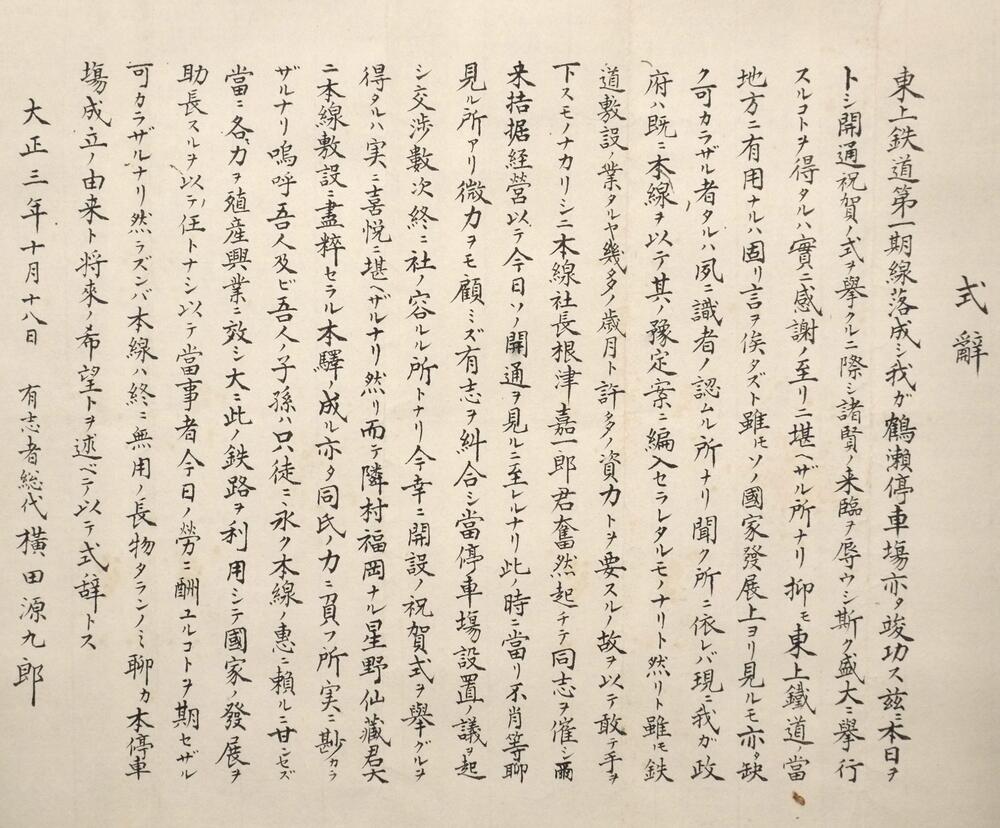 式辭
東上鉄道第一期線落成シ我ガ鶴瀬停車塲亦タ竣功ス茲ニ本日ヲ
トシ開通祝賀ノ式ヲ擧クルニ際シ諸賢ノ来臨ヲ辱ウシ斯ク盛大ニ擧行
スルコトヲ得タルハ實ニ感謝ノ至リニ堪ヘザル所ナリ抑モ東上鐵道當
地方ニ有用ナルハ固リ言ヲ俟タズト雖モソノ國家發展上ヨリ見ルモ亦タ缺
ク可カラザル者タルハ夙ニ識者ノ認ムル所ナリ聞ク所ニ依レバ現ニ我ガ政
府ハ既ニ本線ヲ以テ其ノ豫定案ニ編入セラレタルモノナリト然リト雖モ鉄
道敷設ノ業タルヤ幾多ノ歳月ト許多ノ資力トヲ要スルノ故ヲ以テ敢テ手ヲ
下スモノナカリシニ本線社長根津嘉一郎君奮然起チテ同志ヲ催シ爾
来拮据経営以テ今日ソノ開通ヲ見ルニ至レルナリ此ノ時ニ當リ不肖等聊
見ル所アリ微力ヲモ顧ミズ有志ヲ糾合シ當停車塲設置ノ議ヲ起
シ交渉數次終ニ社ノ容ルル所トナリ今幸ニ開設ノ祝賀式ヲ舉グルヲ
得タルハ実ニ喜悦ニ堪ヘザルナリ然リ而テ隣村福岡ナル星野仙蔵君大
ニ本線敷設ニ盡粹セラル本驛ノ成ル亦タ同氏ノ力ニ負フ所実ニ尠カラ
ザルナリ嗚呼吾人及ビ吾人ノ子孫ハ只徒ニ永ク本線ノ惠ニ賴ルニ甘ンセズ
當ニ各力ヲ殖産興業ニ效シ大ニ此ノ鉄路ヲ利用シテ國家ノ發展ヲ
助長スルヲ以テ任トナシ以テ當事者今日ノ勞ニ酬ユルコトヲ期セザル
可カラザルナリ然ラズンバ本線ハ終ニ無用ノ長物タランノミ聊カ本停車
塲成立ノ由来ト将來ノ希望トヲ述ベテ以テ式辞トス
大正三年十月十八日 有志者総代橫田源九郎